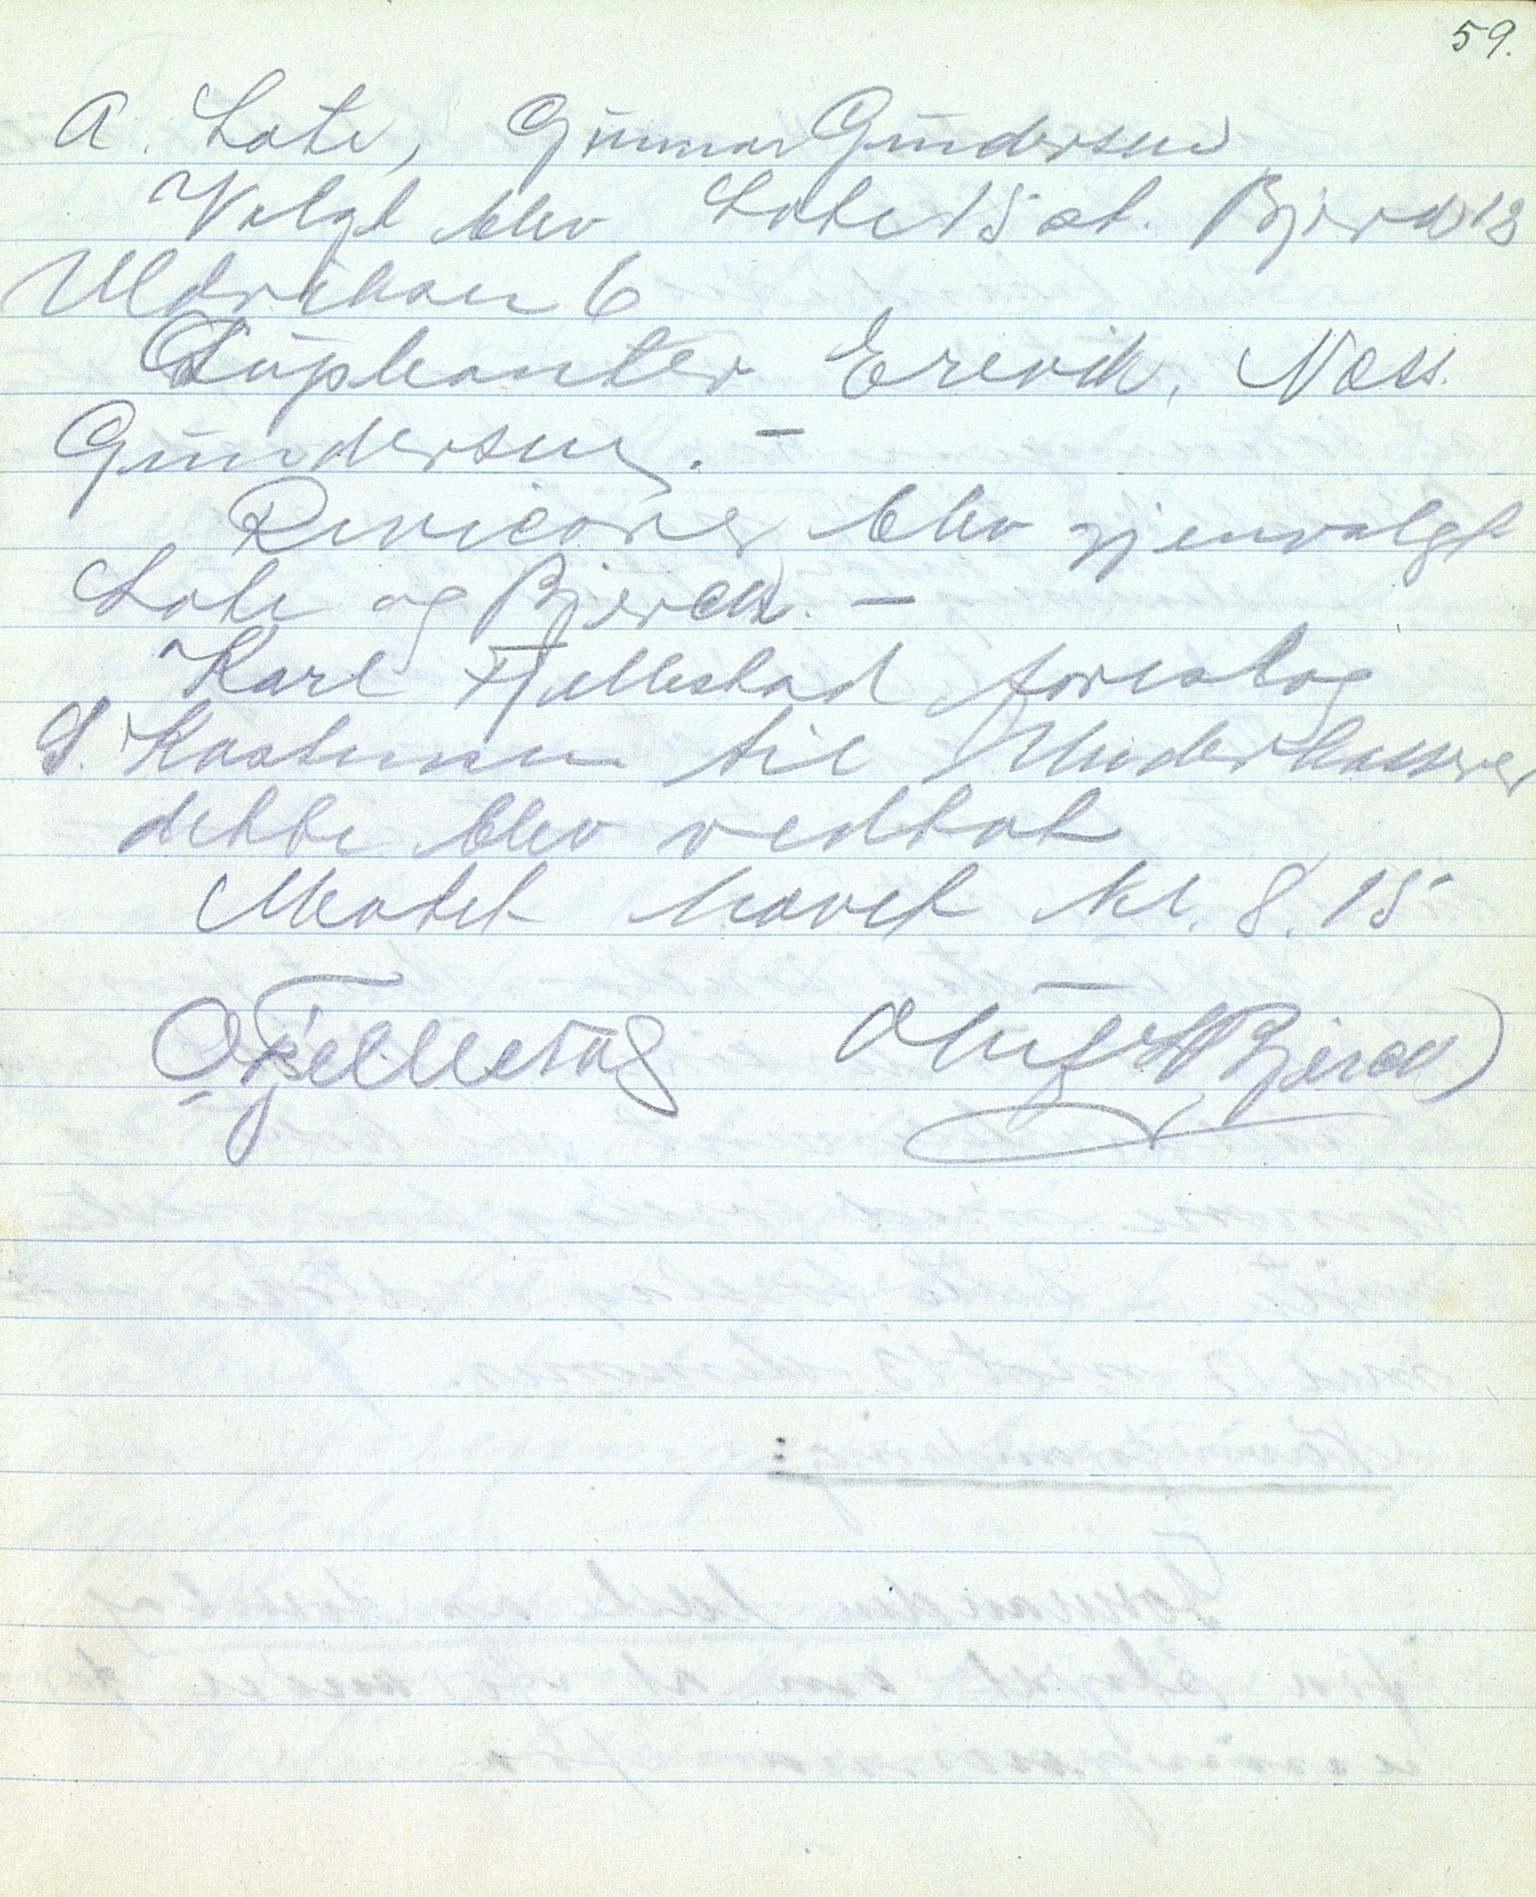 59.
A. Lote, Gunnar Gundersen
Valgt blev Lote 15 st. Bjerck 18
Uldriksen 6
Suplanter Erevik, Næss.
Gundersen. —
Revisorer blev gjenvalgt
Lote og Bjerck. —
Karl Fjellestad foreslog
S. Kostumu til Underkasserer
dette blev vedtat
Møtet hævet kl. 8.15
O Fjellestad Oluf H Bjerck